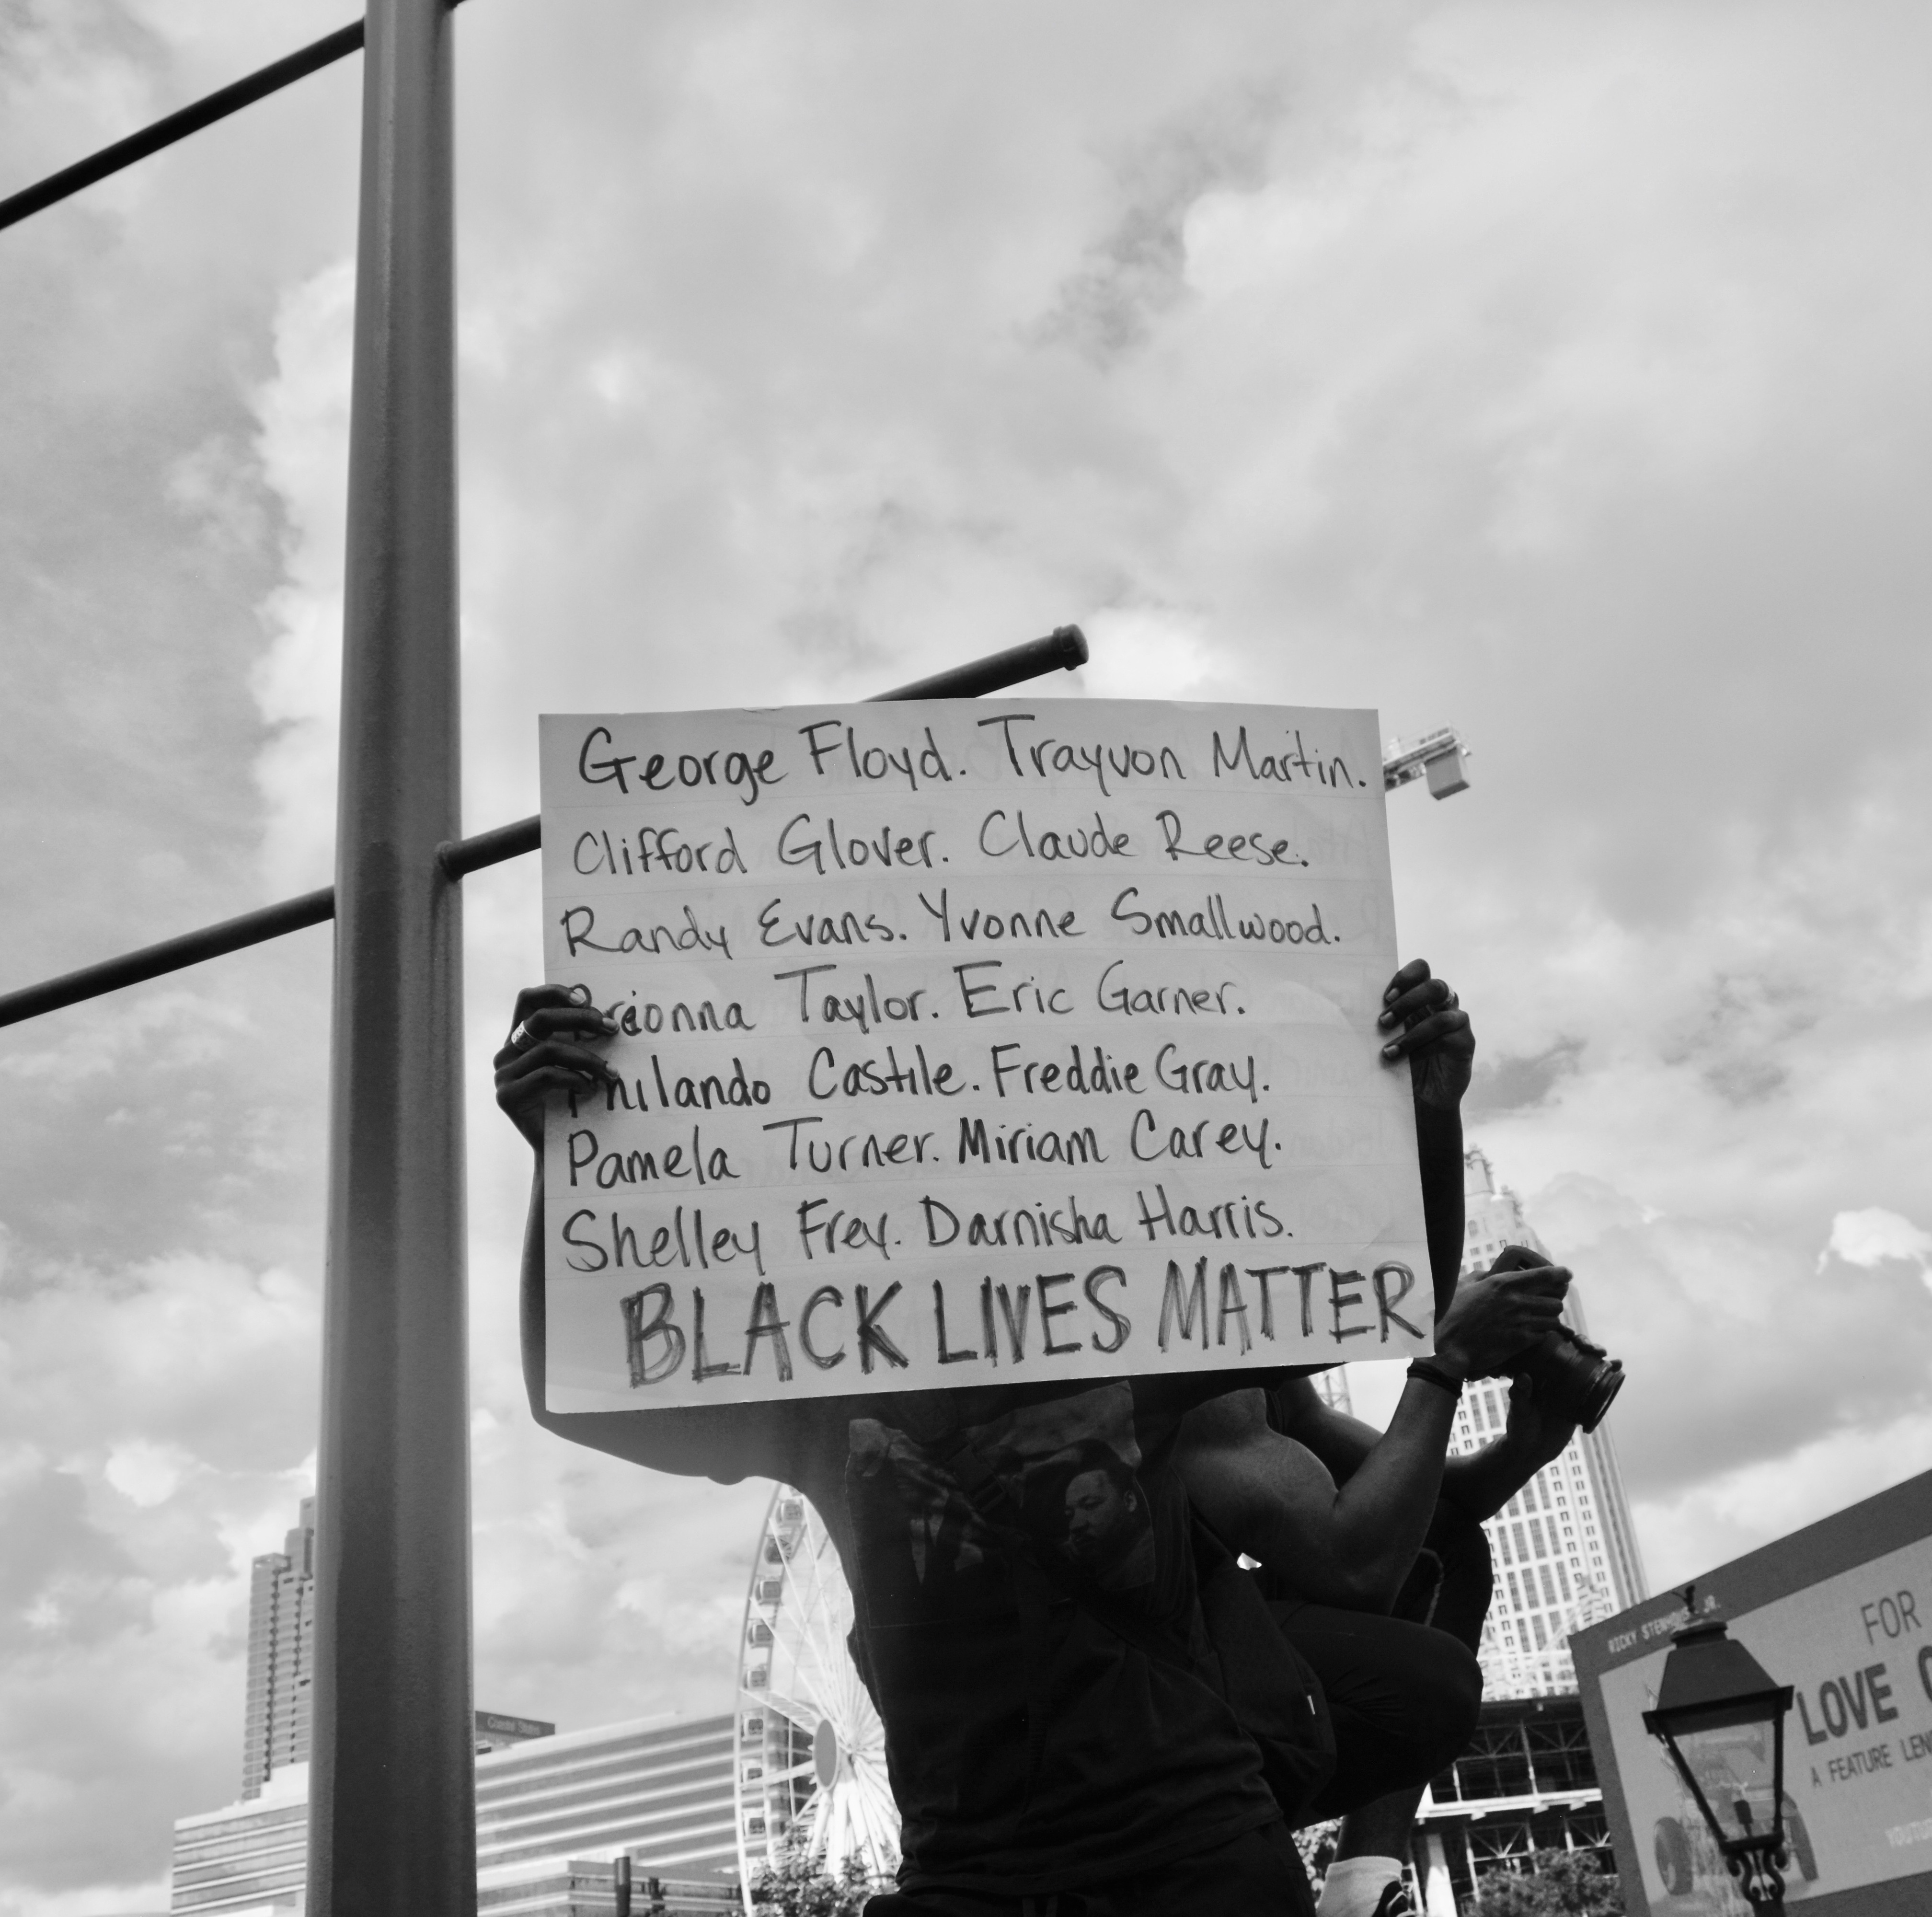 George Floyd. Trayvon Martin.
Clifford Glover. Claude Reese.
Randy Evans. Yvonne Smallwood.
Breonna Taylor. Eric Garner.
Philando Castile. Freddie Gray.
Pamela Turner. Miriam Carey.
Shelley Frey. Darnisha Harris.
BLACK LIVES MATTER
Coastal States
RICKY STENHOUSE JR.
FOR
LOVE
A FEATURE